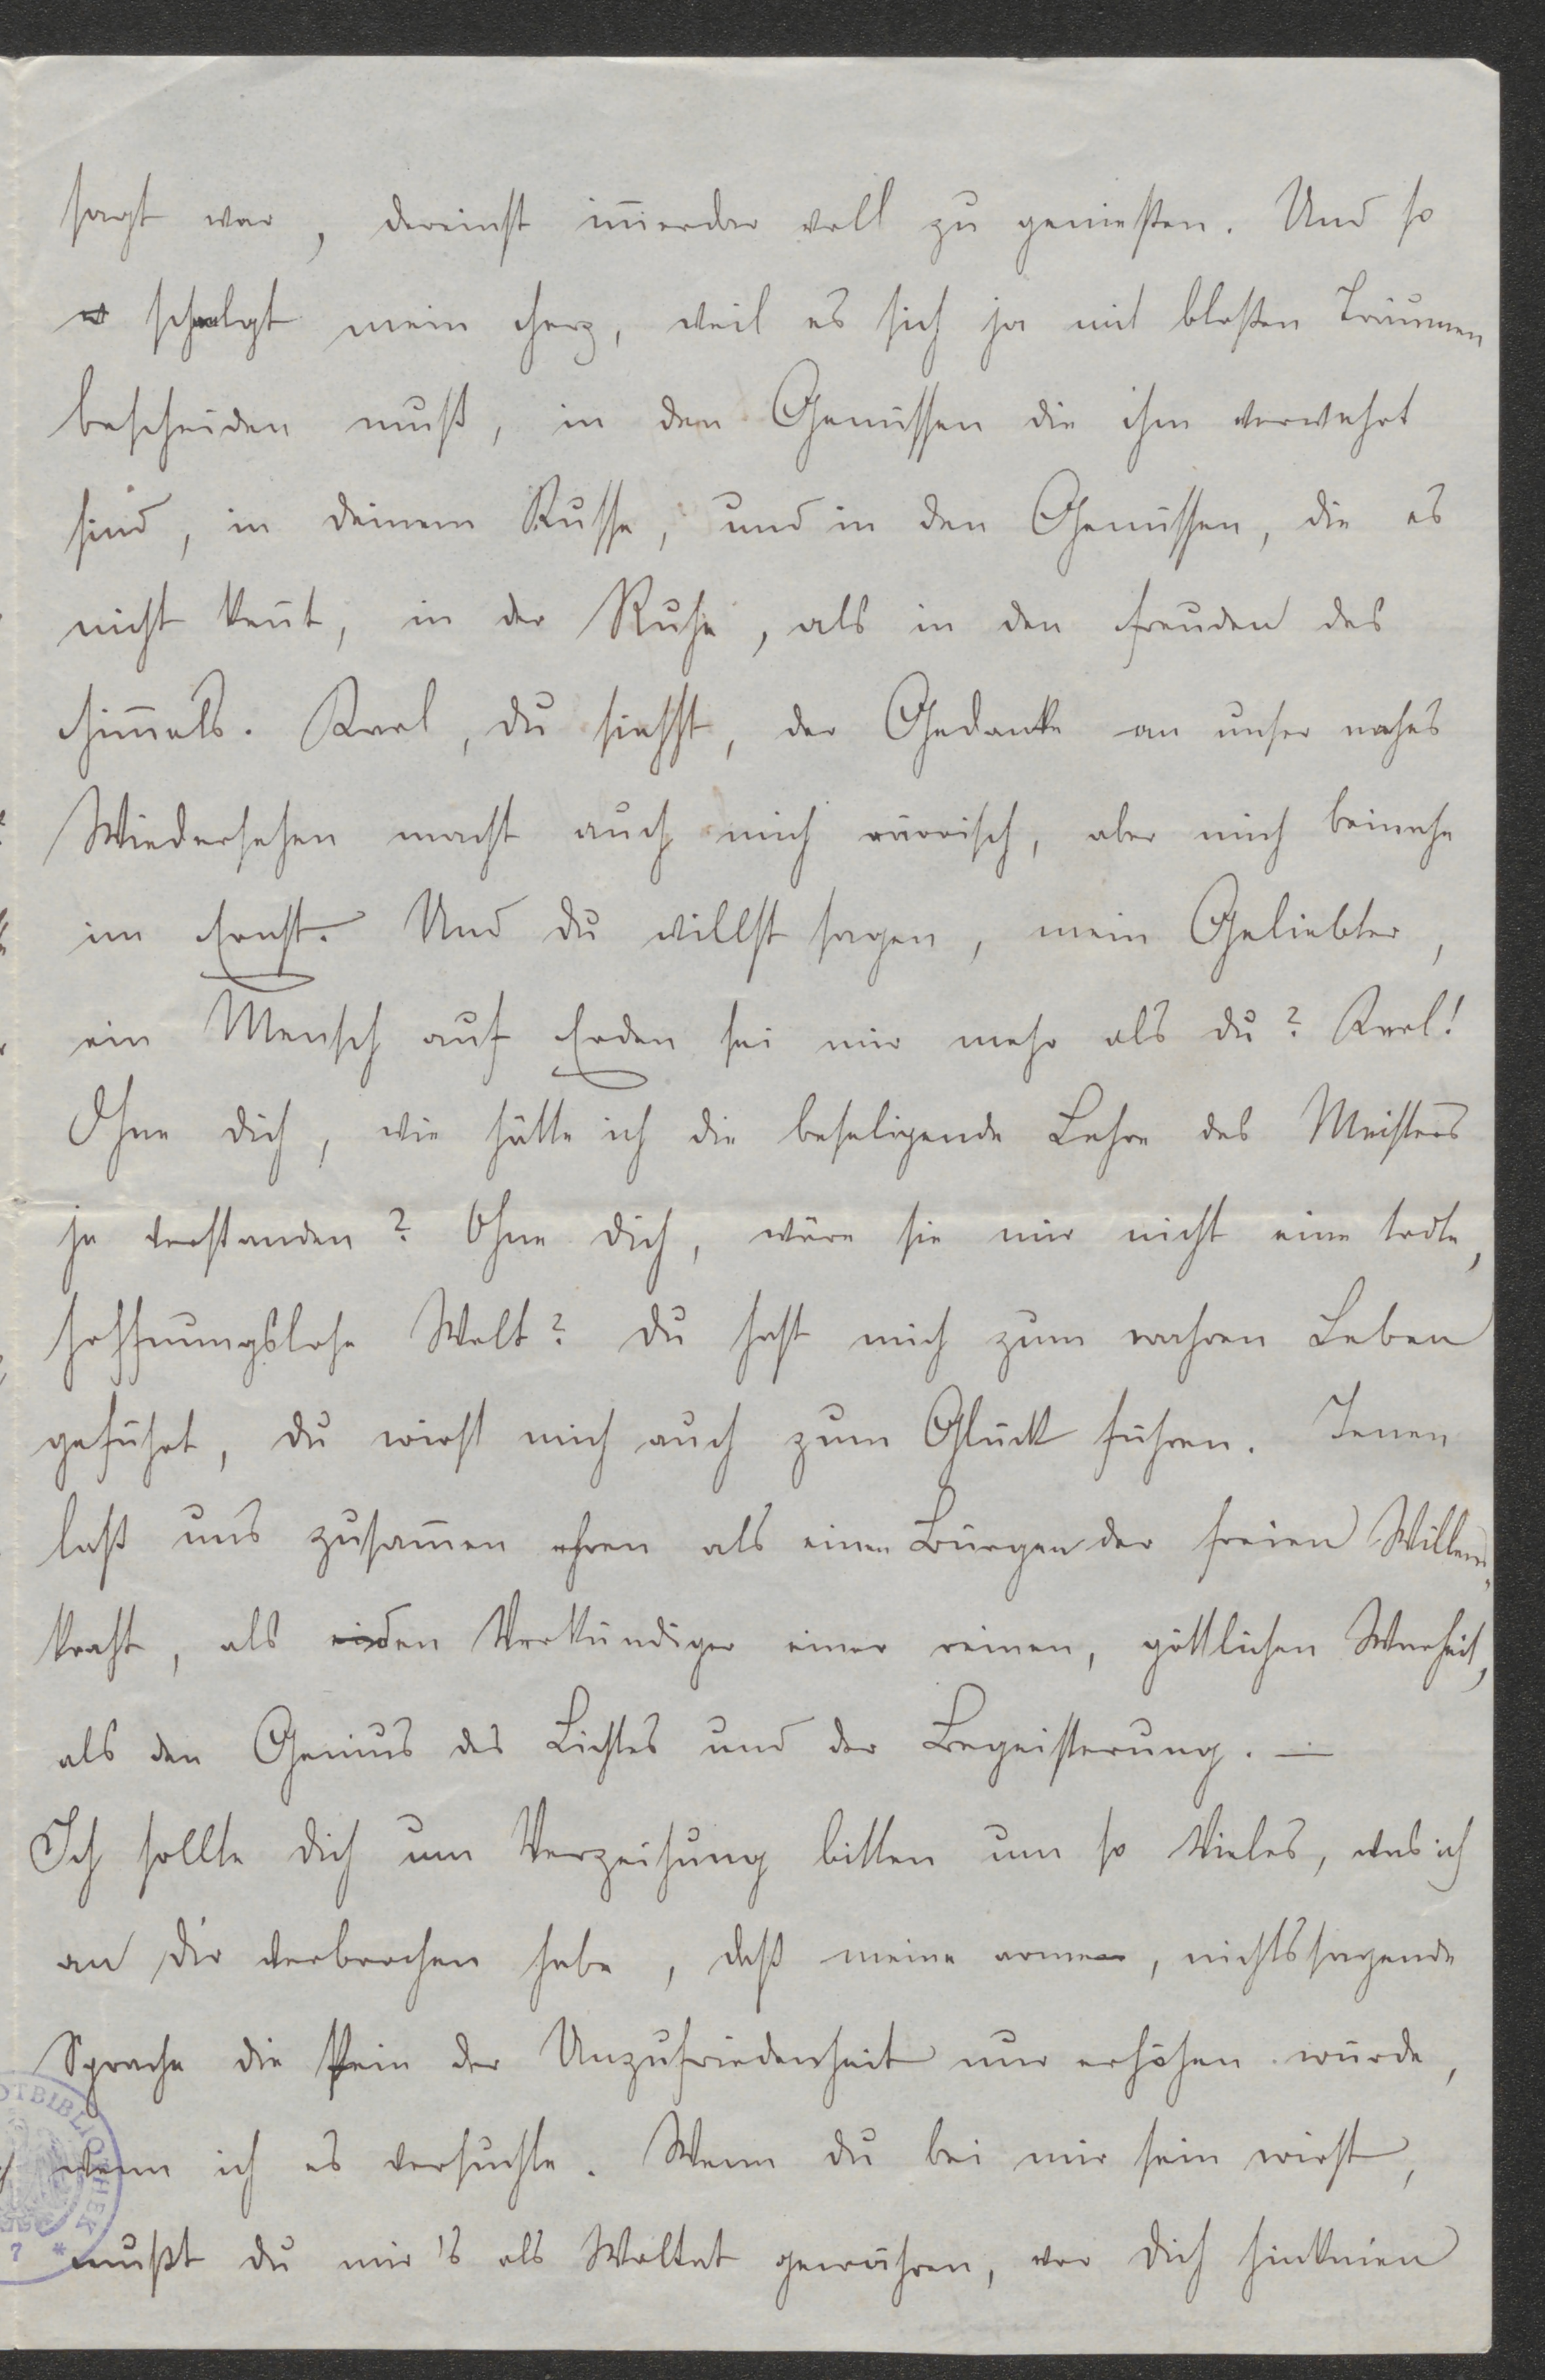 sagt war, dereinst im̄erdar voll zu genießen. Und so
schwelgt mein Herz, weil es sich ja mit bloßen Träumen
bescheiden muß, in den Genüssen die ihm verwehrt
sind, in deinem Kusse, und in den Genüssen, die es
nicht ken̄t, in der Ruhe, als in den Freuden des
Him̄els. Karl, du siehst, der Gedanke an unser nahes
Wiedersehen macht auch mich närrisch, aber mich beinahe
im Ernst. Und du willst sagen, mein Geliebter,
ein Mensch auf Erden sei mir mehr als du? Karl!
Ohne dich, wie hätte ich die beseligende Lehre des Meisters
je verstanden? Ohne dich, wäre sie mir nicht eine todte,
hoffnungslose Welt? Du hast mich zum wahren Leben
geführt, du wirst mich auch zum Glück führen. Jenen
laß uns zusam̄en ehren als einen Bürgen der freien Willens,
kraft, als den Verkündiger einer reinen, göttlichen Warheit,
als den Genius des Lichtes und der Begeisterung. —
Ich sollte dich um Verzeihung bitten um so Vieles, was ich
an dir verbrochen habe, daß meine arme, nichtssagende
Sprache die Pein der Unzufriedenheit nur erhöhen würde,
wenn ich es versuchte. Wenn du bei mir sein wirst,
mußt du mir's als Woltat gewähren, vor dich hinknien
OTBIBLIOTHEK
7 *